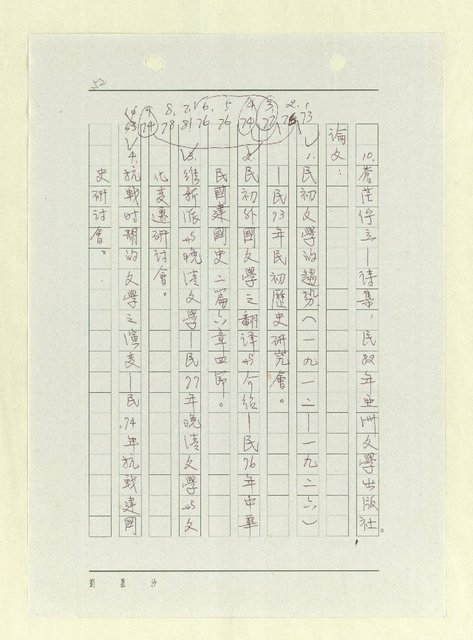 52
1. 2. 3. 4. 5 6. 7. 8. 9. 10.
73 75 77 74 76 76 81 78 74 63
10.蒼茫佇立—詩集,民82年亞洲文學出版社。
論文:
1.民初文學的趨勢(一九一二—一九二六)
—民73年民初歷史研究會。
2.民初外國文學之翻譯與介紹—民76年中華
民國建國史二篇六章四節。
3.維新派與晚清文學—民77年晚清文學與文
化變遷研討會。
4.抗戰时期的文學之演變—民74年抗戰建國
史研討會。